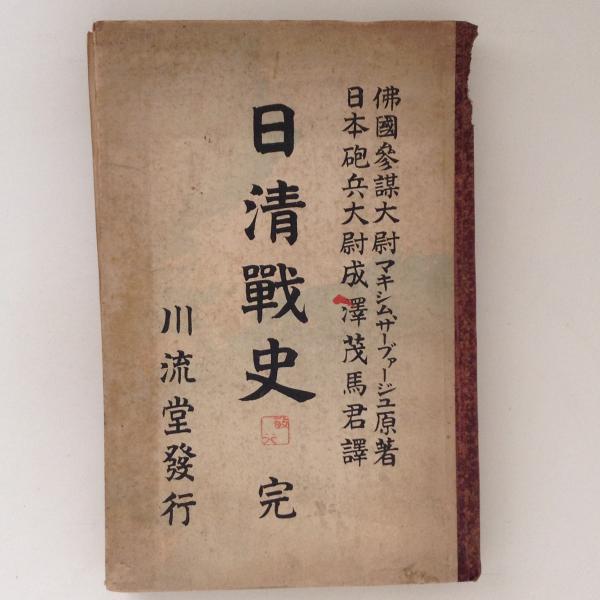 佛國參謀大尉マキシム、サーブァージュ原著
日本砲兵大尉成澤茂馬君譯
日清戰史 完
川流堂發行